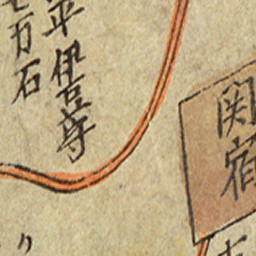 関宿
平 伊豆守
七万石